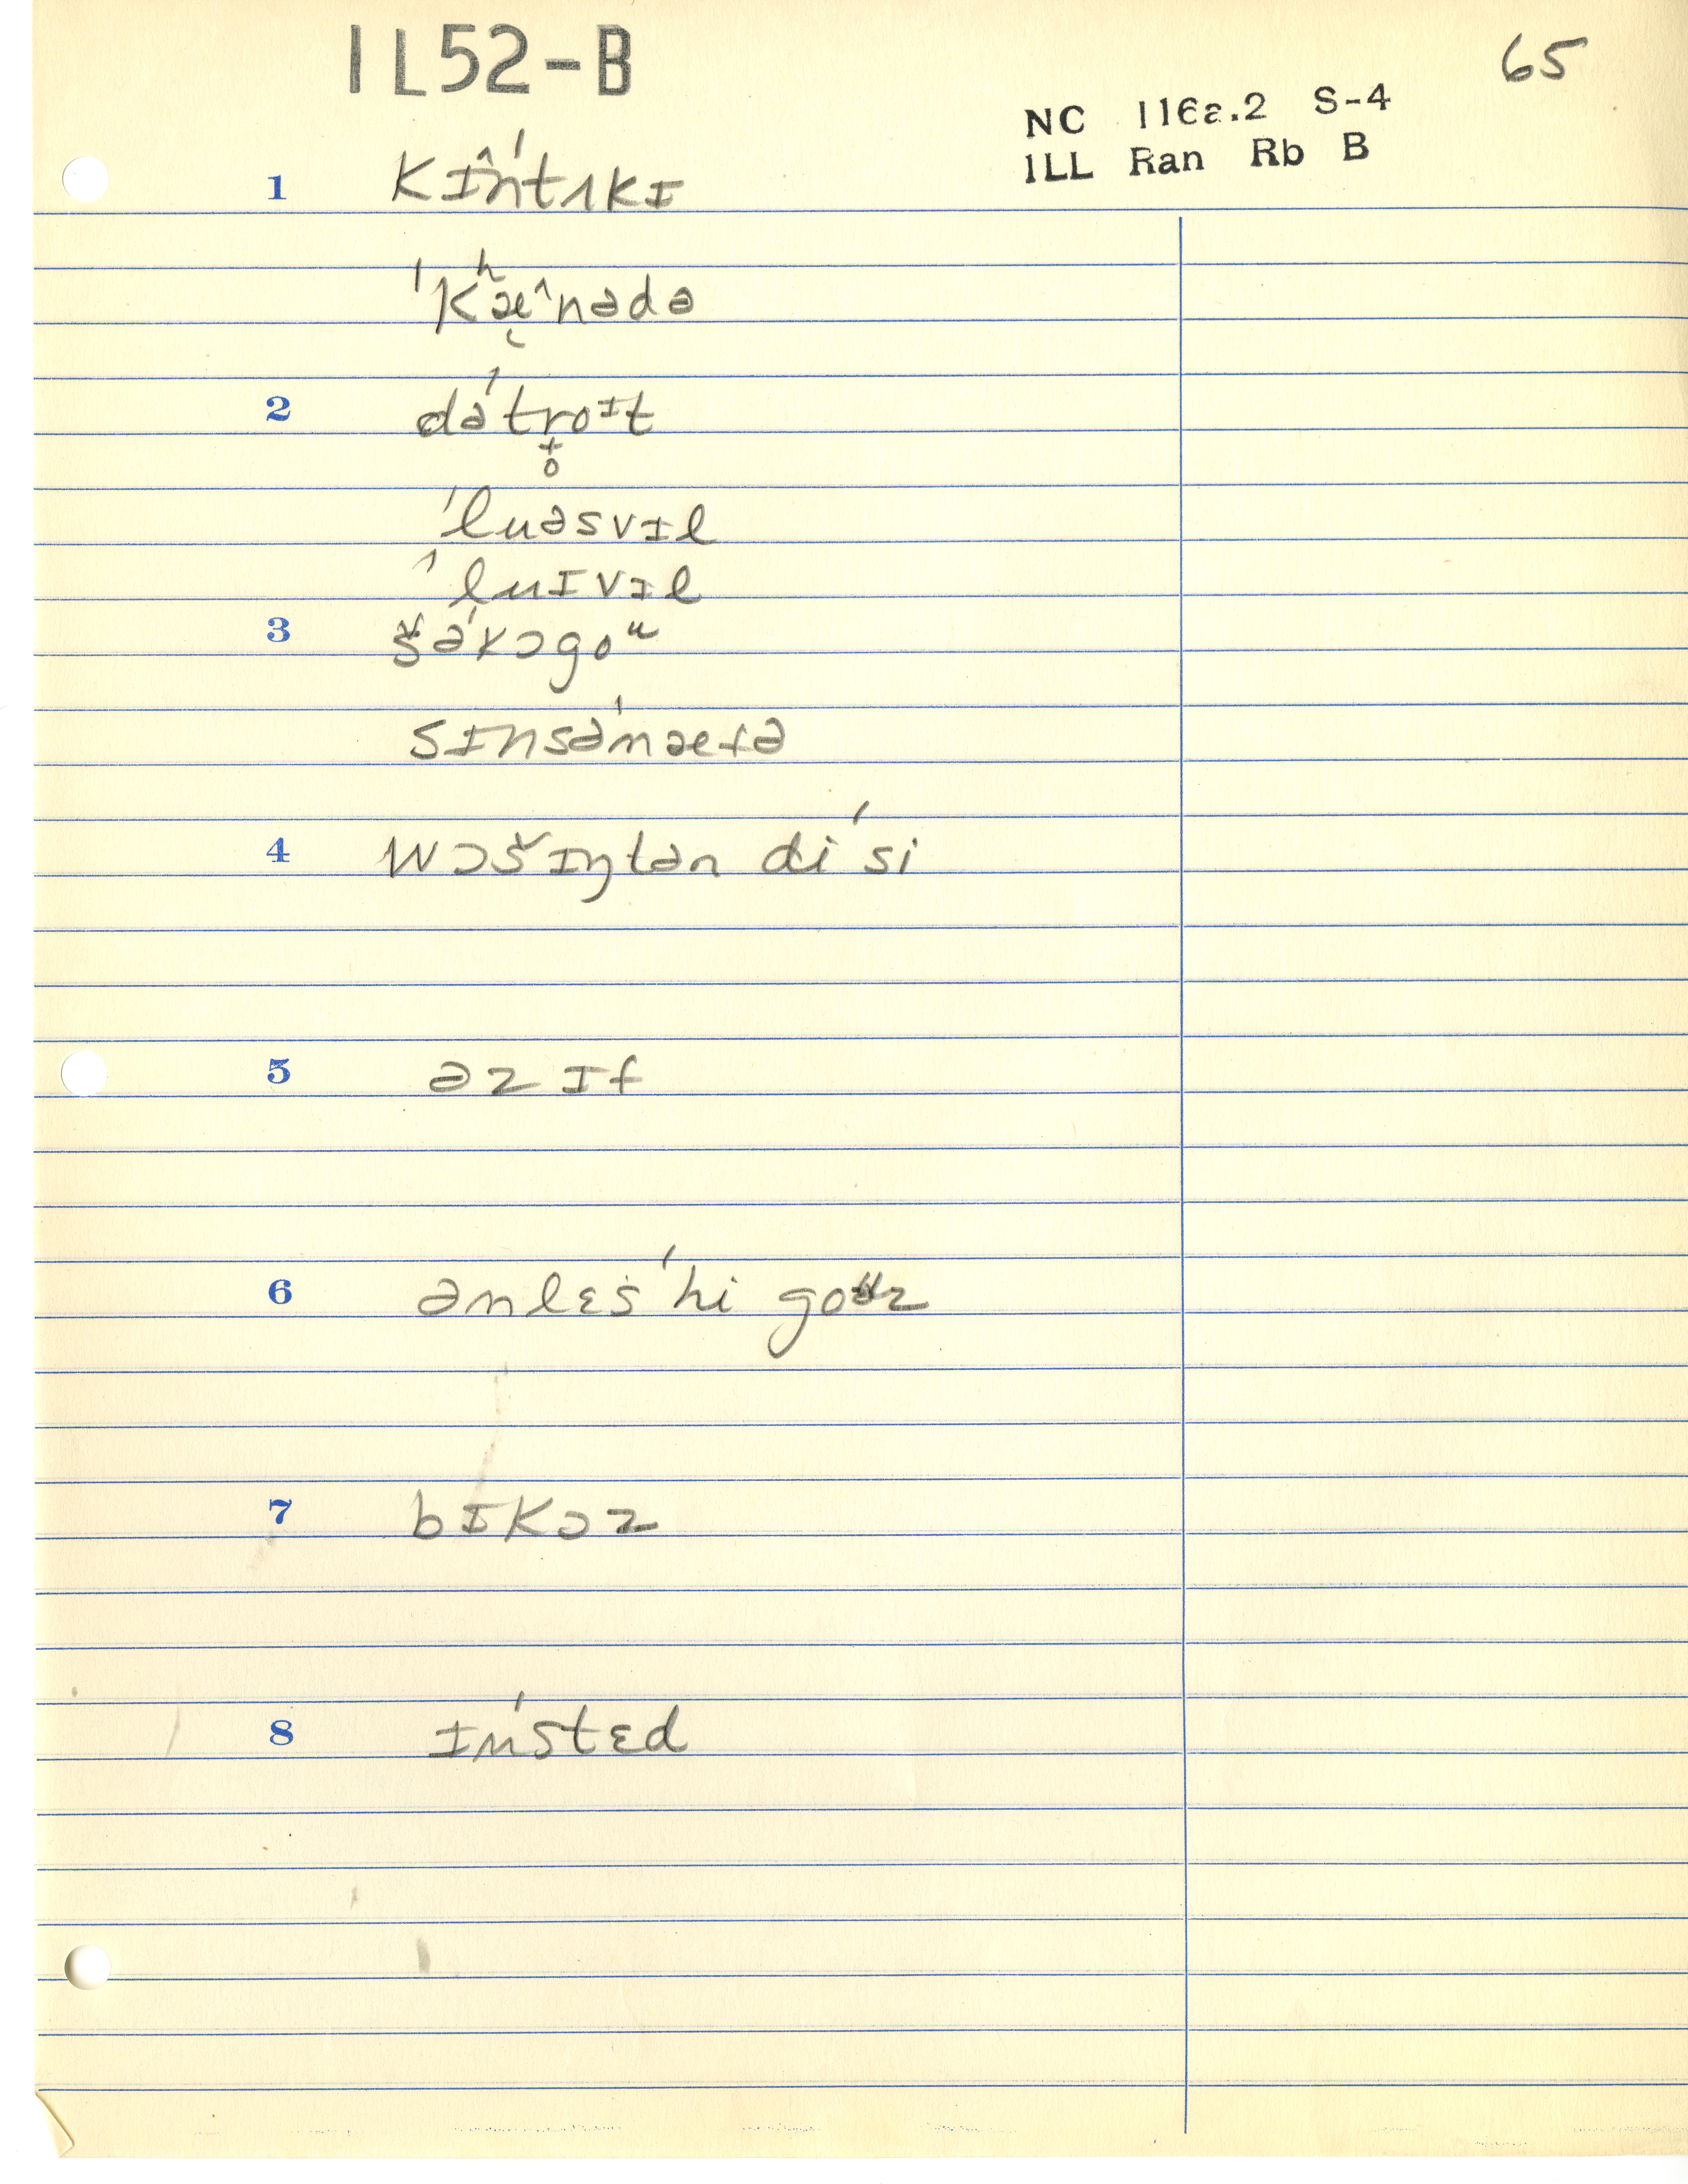 IL52-B
65
NC 116a.2 S-4
ILL Ran Rb B
1 kɪ̂n'tʌkɪ
'kʰæ̜^nədə
2 də'troᶦt
'luəsvɪl
'luɪvɪl
3 šə'kɔgoᵘ
sɪnsə'næɾə
4 wɔšɪŋtən di'si
5 əz ɪf
6 ənlɛs'hi goᵘz
7 bɪkɔz
8 ɪn'stɛd